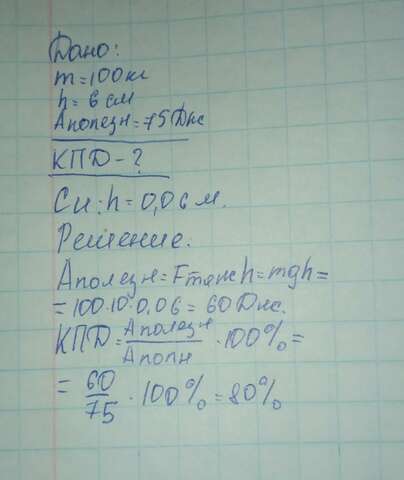 Дано:
m=100кг
h=6см
Aполезн=75Дж
КПД-?
Си:h=0,06м.
Решение.
Aполезн=Fтяжh=mgh=
=100·10·0,06=60Дж.
КПД=Aполезн/Aполн·100%=
=60/75·100%=80%